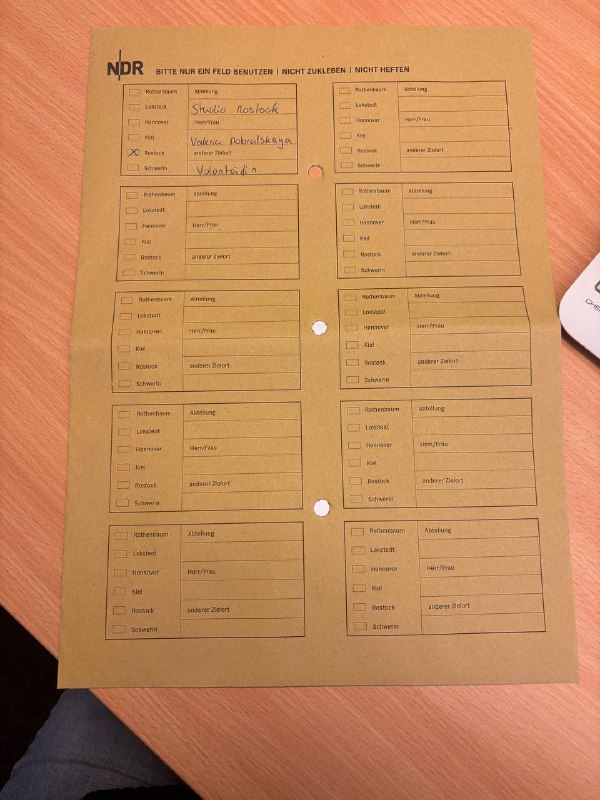 NDR BITTE NUR EIN FELD BENUTZEN | NICHT ZUKLEBEN | NICHT HEFTEN
Rothenbaum Abteilung
Lokstedt Studio Rostock
Hannover Herr/Frau
Kiel Valeria Dobralskaya
Rostock anderer Zielort
Schwerin Volontärin
Rothenbaum Abteilung
Lokstedt
Hannover Herr/Frau
Kiel
Rostock anderer Zielort
Schwerin
Rothenbaum Abteilung
Lokstedt
Hannover Herr/Frau
Kiel
Rostock anderer Zielort
Schwerin
Rothenbaum Abteilung
Lokstedt
Hannover Herr/Frau
Kiel
Rostock anderer Zielort
Schwerin
Rothenbaum Abteilung
Lokstedt
Hannover Herr/Frau
Kiel
Rostock anderer Zielort
Schwerin
Rothenbaum Abteilung
Lokstedt
Hannover Herr/Frau
Kiel
Rostock anderer Zielort
Schwerin
Rothenbaum Abteilung
Lokstedt
Hannover Herr/Frau
Kiel
Rostock anderer Zielort
Schwerin
Rothenbaum Abteilung
Lokstedt
Hannover Herr/Frau
Kiel
Rostock anderer Zielort
Schwerin
Rothenbaum Abteilung
Lokstedt
Hannover Herr/Frau
Kiel
Rostock anderer Zielort
Schwerin
Rothenbaum Abteilung
Lokstedt
Hannover Herr/Frau
Kiel
Rostock anderer Zielort
Schwerin